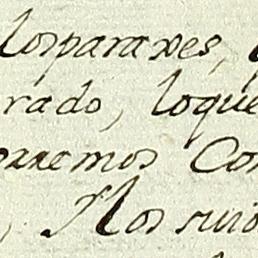 losparaxes,
rado, loque
aremos Con
, Nos